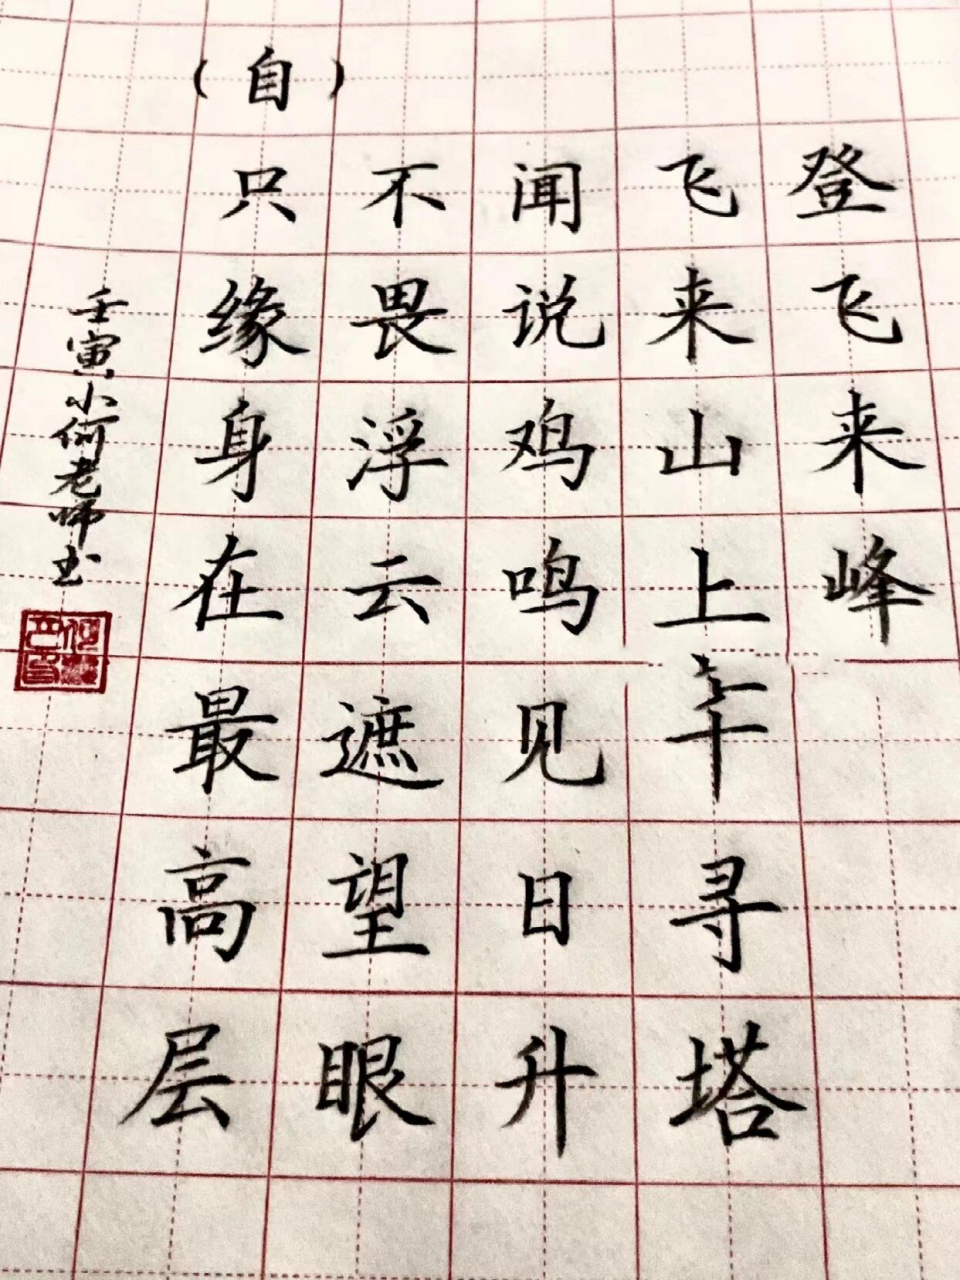 登飞来峰
飞来山上千寻塔
闻说鸡鸣见日升
不畏浮云遮望眼
（自）只缘身在最高层
壬寅小何老师书